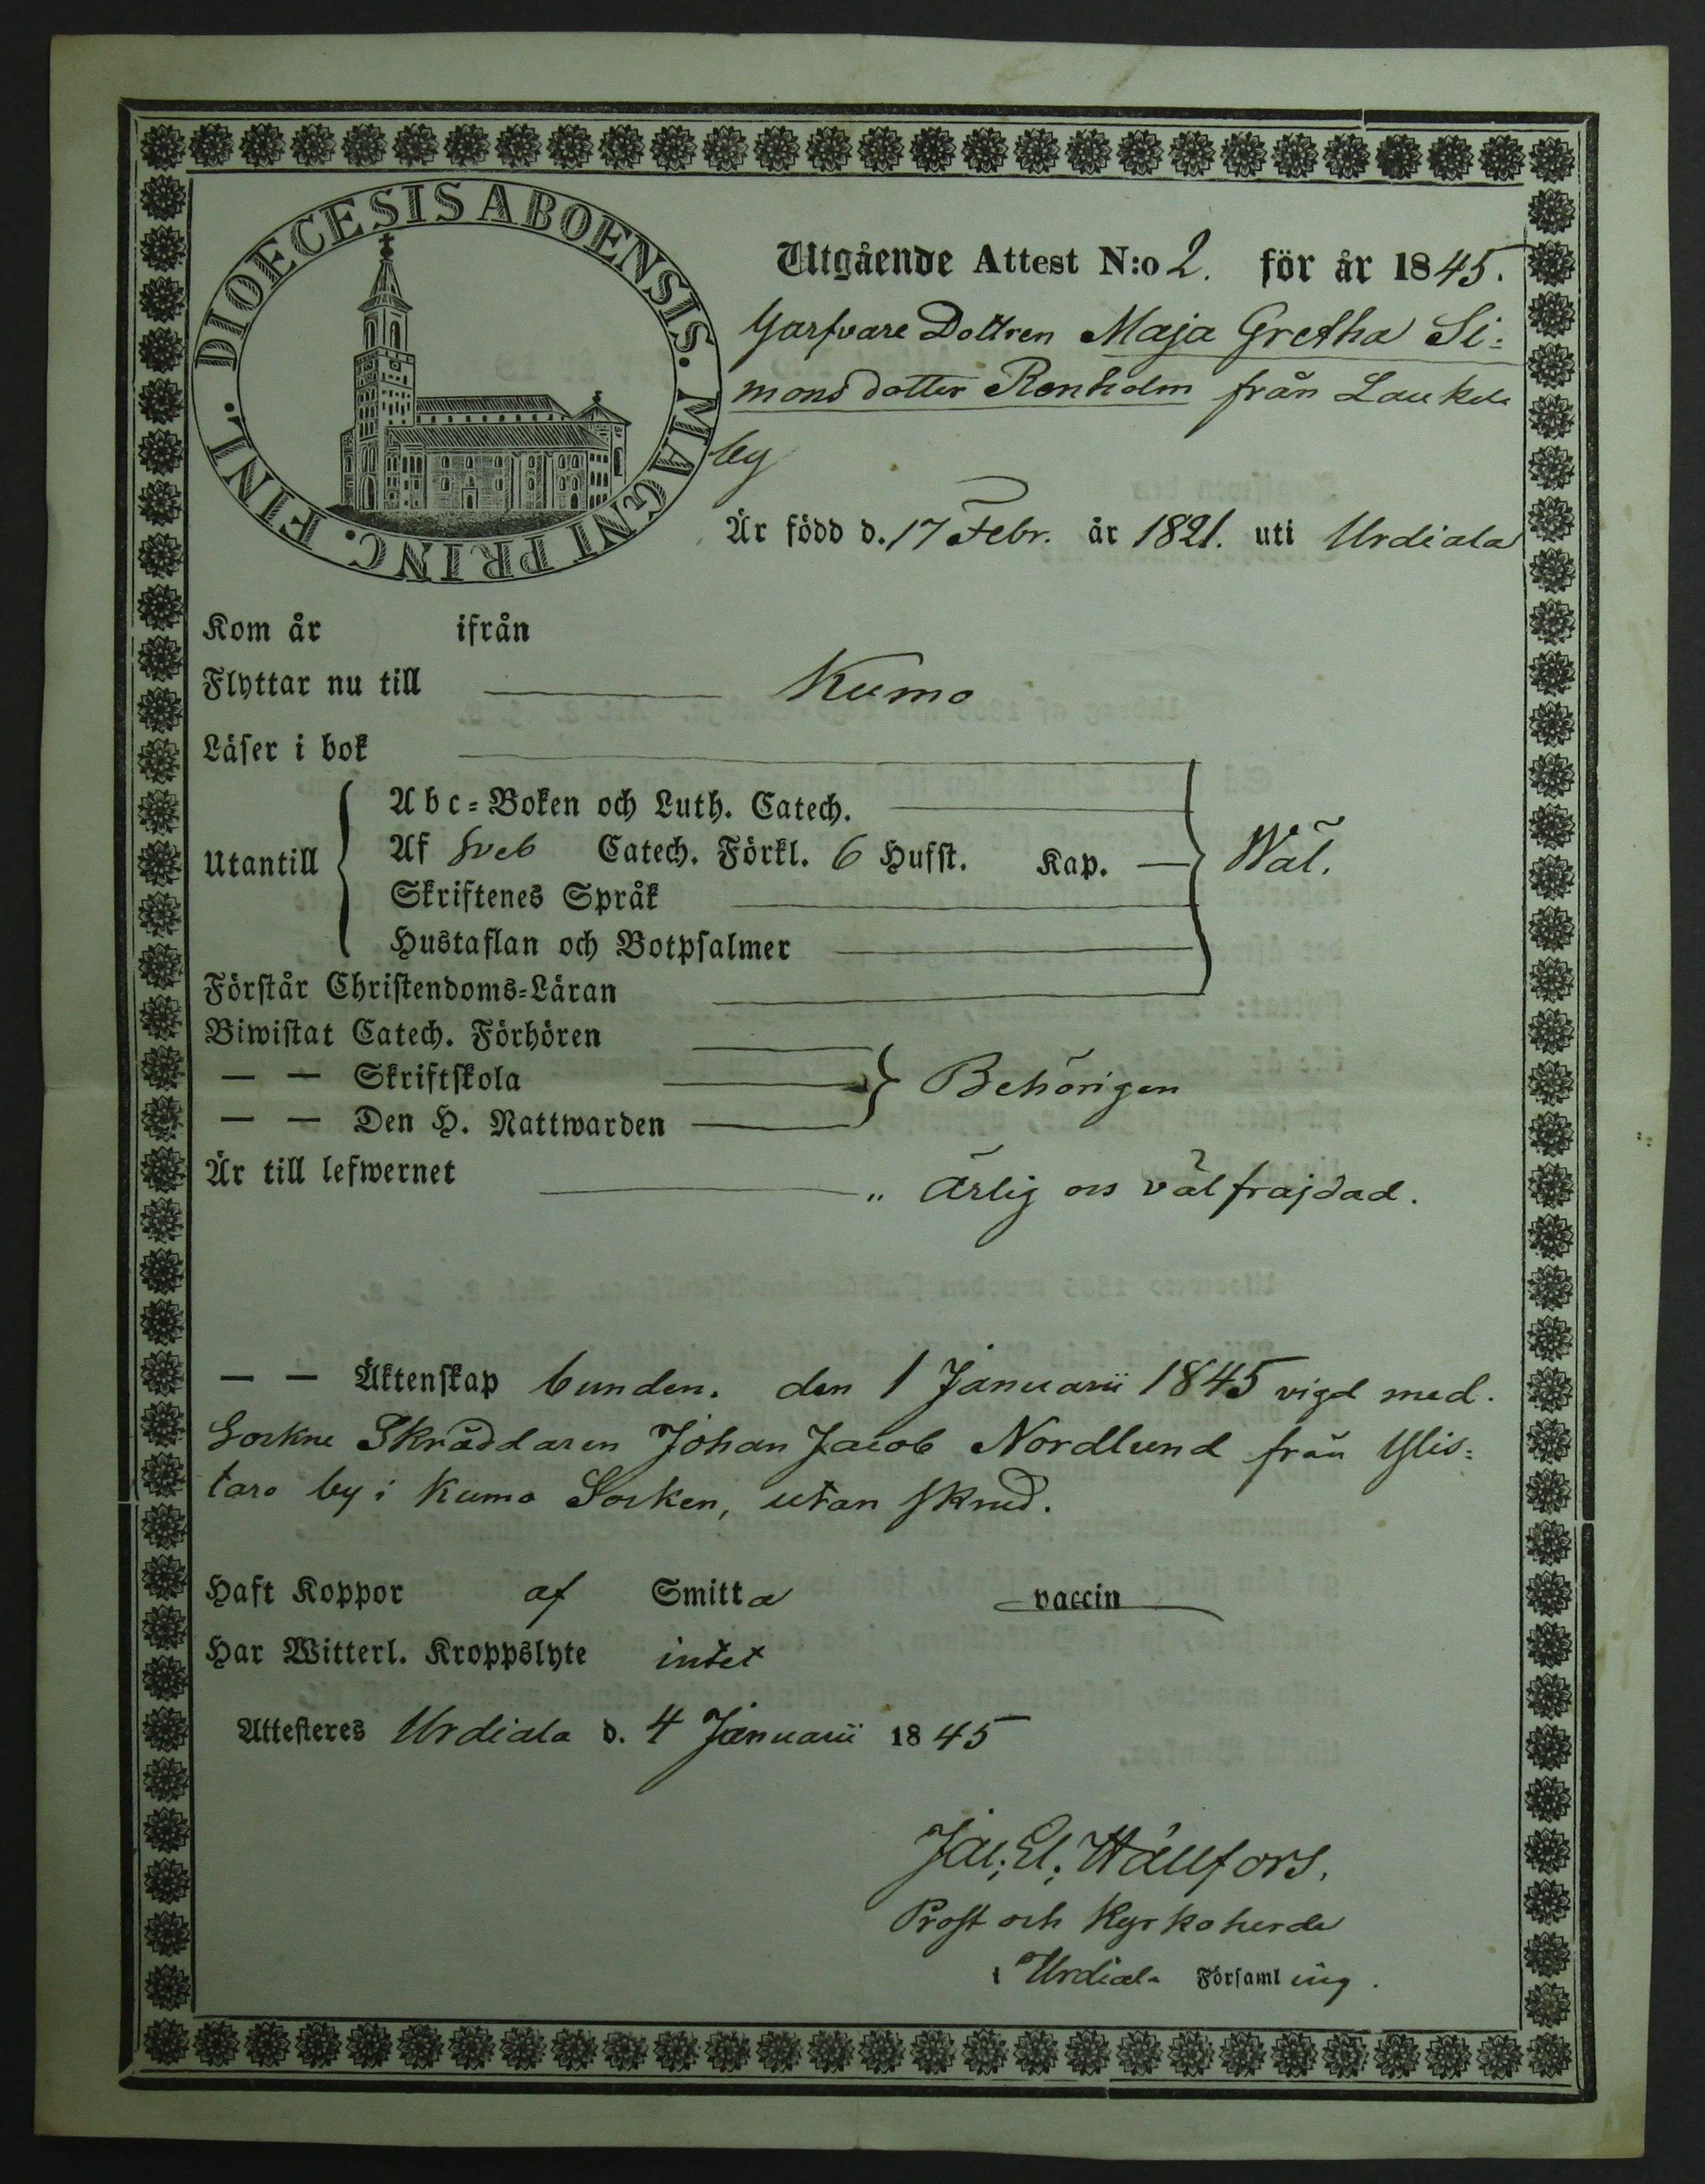 DIOECESIS ABOENSIS. MAGNI PRINC. FINL.
Utgående Attest N:o 2. för år 1845.
Garfvare Dottren Maja Gretha Si=
monsdotter Renholm från Laukela
by
Är född d. 17 Febr. år 1821. uti Urdiala
Kom år ifrån
Flyttar nu till Kumo
Läser i bok
Utantill
Abc=Boken och Luth. Catech.
Af Sveb Catech. Förkl. 6 Hufst. Kap. — Wäl.
Skriftenes Språk
Hustaflan och Botpsalmer
Förstår Christendoms=Läran
Biwistat Catech. Förhören
— — Skriftskola Behörigen
— — Den H. Nattwarden
Är till lefwernet „ Ärlig och välfrajdad.
— — Äktenskap bunden. den 1 Januarii 1845 vigd med
Sockne Skräddaren Johan Jacob Nordlund från Ylis=
taro by i Kumo Socken, utan skrud.
Haft Koppor af Smitta vaccin
Har Witterl. Kroppslyte intet
Attesteres Urdiala d. 4 Januarii 1845
Jac. El. Wällfors.
Prost och Kyrkoherde
i Urdiala Församling.